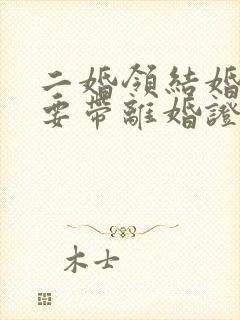 二婚領結婚
要帶離婚證
木士